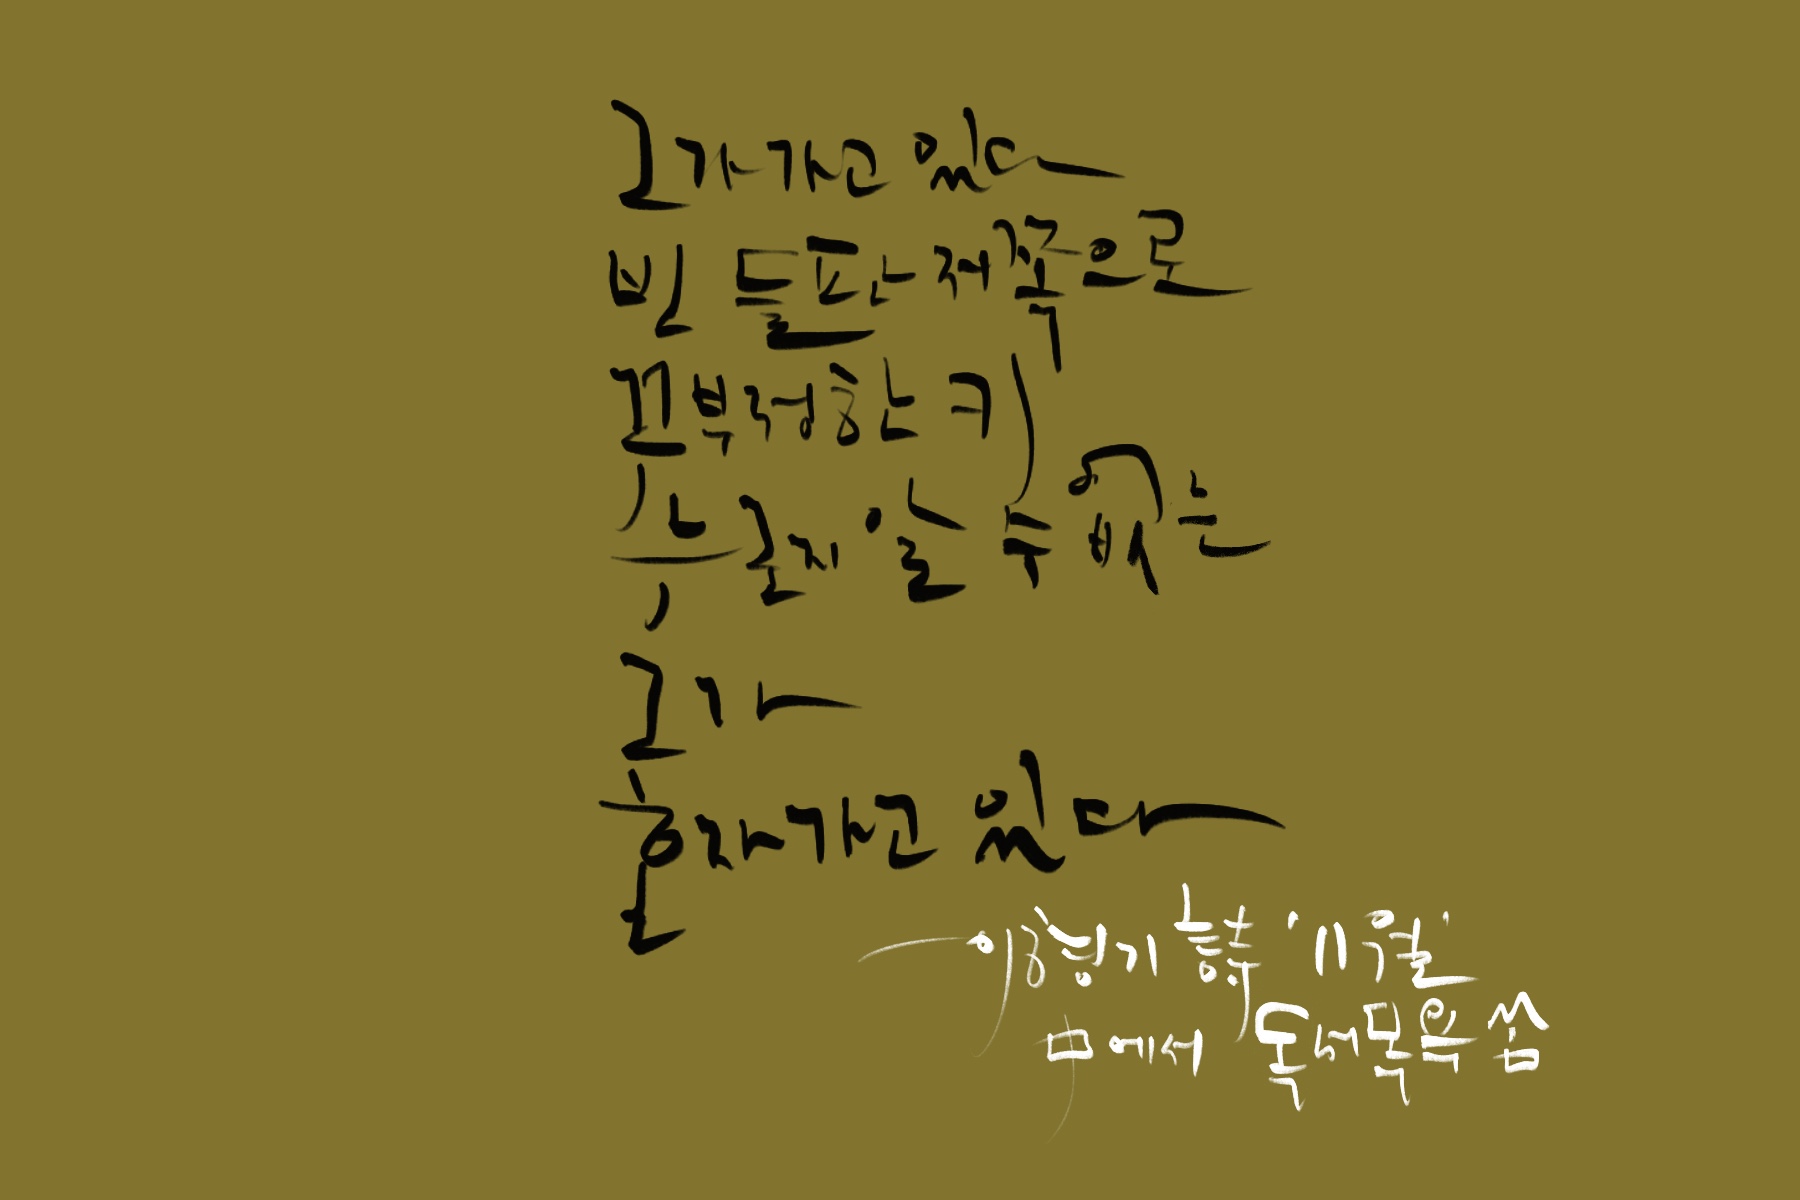 그가 가고 있다
빈 들판 저쪽으로
꾸부정한 키
누군지 알 수 없는
그가
혼자 가고 있다
이형기 詩 '11월'
中에서 독서목욕 씀